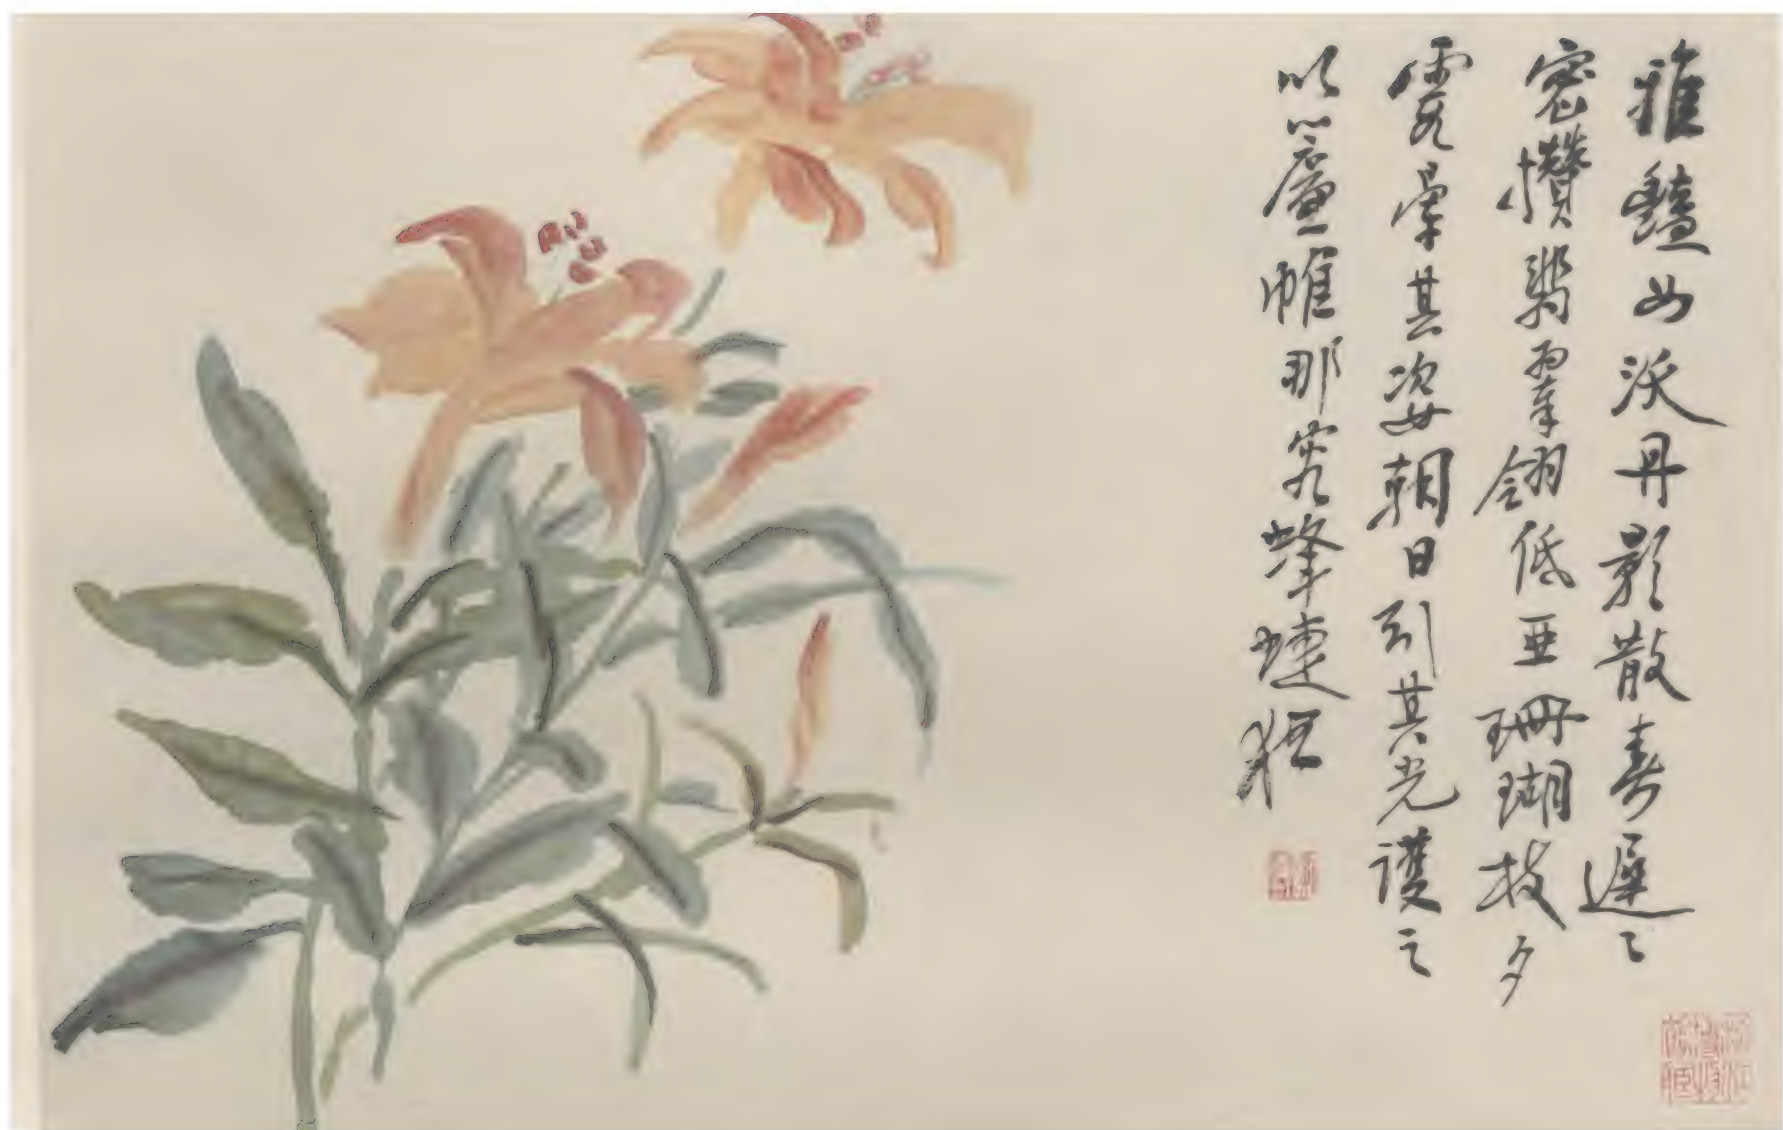 雅豔如沃丹影散春遲〻
密攢翡翠翎低亞珊瑚枝夕
露暈其姿朝日引其光護之
以簾帷那容蜂蝶狂